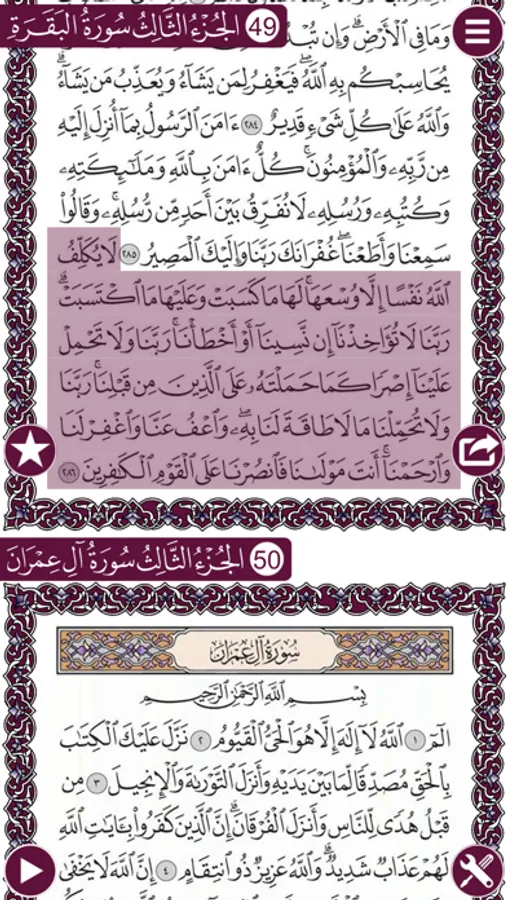 الجُزْءُ الثَّالِثُ سُورَةُ البَقَرَةِ 49
وَمَا فِى ٱلْأَرْضِ ۗ وَإِن
يُحَاسِبْكُم بِهِ ٱللَّهُ ۖ فَيَغْفِرُ لِمَن يَشَآءُ وَيُعَذِّبُ مَن يَشَآءُ ۗ
وَٱللَّهُ عَلَىٰ كُلِّ شَىْءٍ قَدِيرٌ ٢٨٤ ءَامَنَ ٱلرَّسُولُ بِمَآ أُنزِلَ إِلَيْهِ
مِن رَّبِّهِۦ وَٱلْمُؤْمِنُونَ ۚ كُلٌّ ءَامَنَ بِٱللَّهِ وَمَلَـٰٓئِكَتِهِۦ
وَكُتُبِهِۦ وَرُسُلِهِۦ لَا نُفَرِّقُ بَيْنَ أَحَدٍ مِّن رُّسُلِهِۦ ۚ وَقَالُوا۟
سَمِعْنَا وَأَطَعْنَا ۖ غُفْرَانَكَ رَبَّنَا وَإِلَيْكَ ٱلْمَصِيرُ ٢٨٥ لَا يُكَلِّفُ
ٱللَّهُ نَفْسًا إِلَّا وُسْعَهَا ۚ لَهَا مَا كَسَبَتْ وَعَلَيْهَا مَا ٱكْتَسَبَتْ ۗ
رَبَّنَا لَا تُؤَاخِذْنَآ إِن نَّسِينَآ أَوْ أَخْطَأْنَا ۚ رَبَّنَا وَلَا تَحْمِلْ
عَلَيْنَآ إِصْرًا كَمَا حَمَلْتَهُۥ عَلَى ٱلَّذِينَ مِن قَبْلِنَا ۚ رَبَّنَا
وَلَا تُحَمِّلْنَا مَا لَا طَاقَةَ لَنَا بِهِۦ ۖ وَٱعْفُ عَنَّا وَٱغْفِرْ لَنَا
وَٱرْحَمْنَآ ۚ أَنتَ مَوْلَىٰنَا فَٱنصُرْنَا عَلَى ٱلْقَوْمِ ٱلْكَـٰفِرِينَ ٢٨٦
الجُزْءُ الثَّالِثُ سُورَةُ آلِ عِمْرَانَ 50
سُورَةُ آلِ عِمْرَانَ
بِسْمِ ٱللَّهِ ٱلرَّحْمَـٰنِ ٱلرَّحِيمِ
الٓمٓ ١ ٱللَّهُ لَآ إِلَـٰهَ إِلَّا هُوَ ٱلْحَىُّ ٱلْقَيُّومُ ٢ نَزَّلَ عَلَيْكَ ٱلْكِتَـٰبَ
بِٱلْحَقِّ مُصَدِّقًا لِّمَا بَيْنَ يَدَيْهِ وَأَنزَلَ ٱلتَّوْرَىٰةَ وَٱلْإِنجِيلَ ٣ مِن
قَبْلُ هُدًى لِّلنَّاسِ وَأَنزَلَ ٱلْفُرْقَانَ ۗ إِنَّ ٱلَّذِينَ كَفَرُوا۟ بِـَٔايَـٰتِ ٱللَّهِ
لَهُمْ عَذَابٌ شَدِيدٌ ۗ وَٱللَّهُ عَزِيزٌ ذُو ٱنتِقَامٍ ٤ إِنَّ ٱللَّهَ لَا يَخْفَىٰ